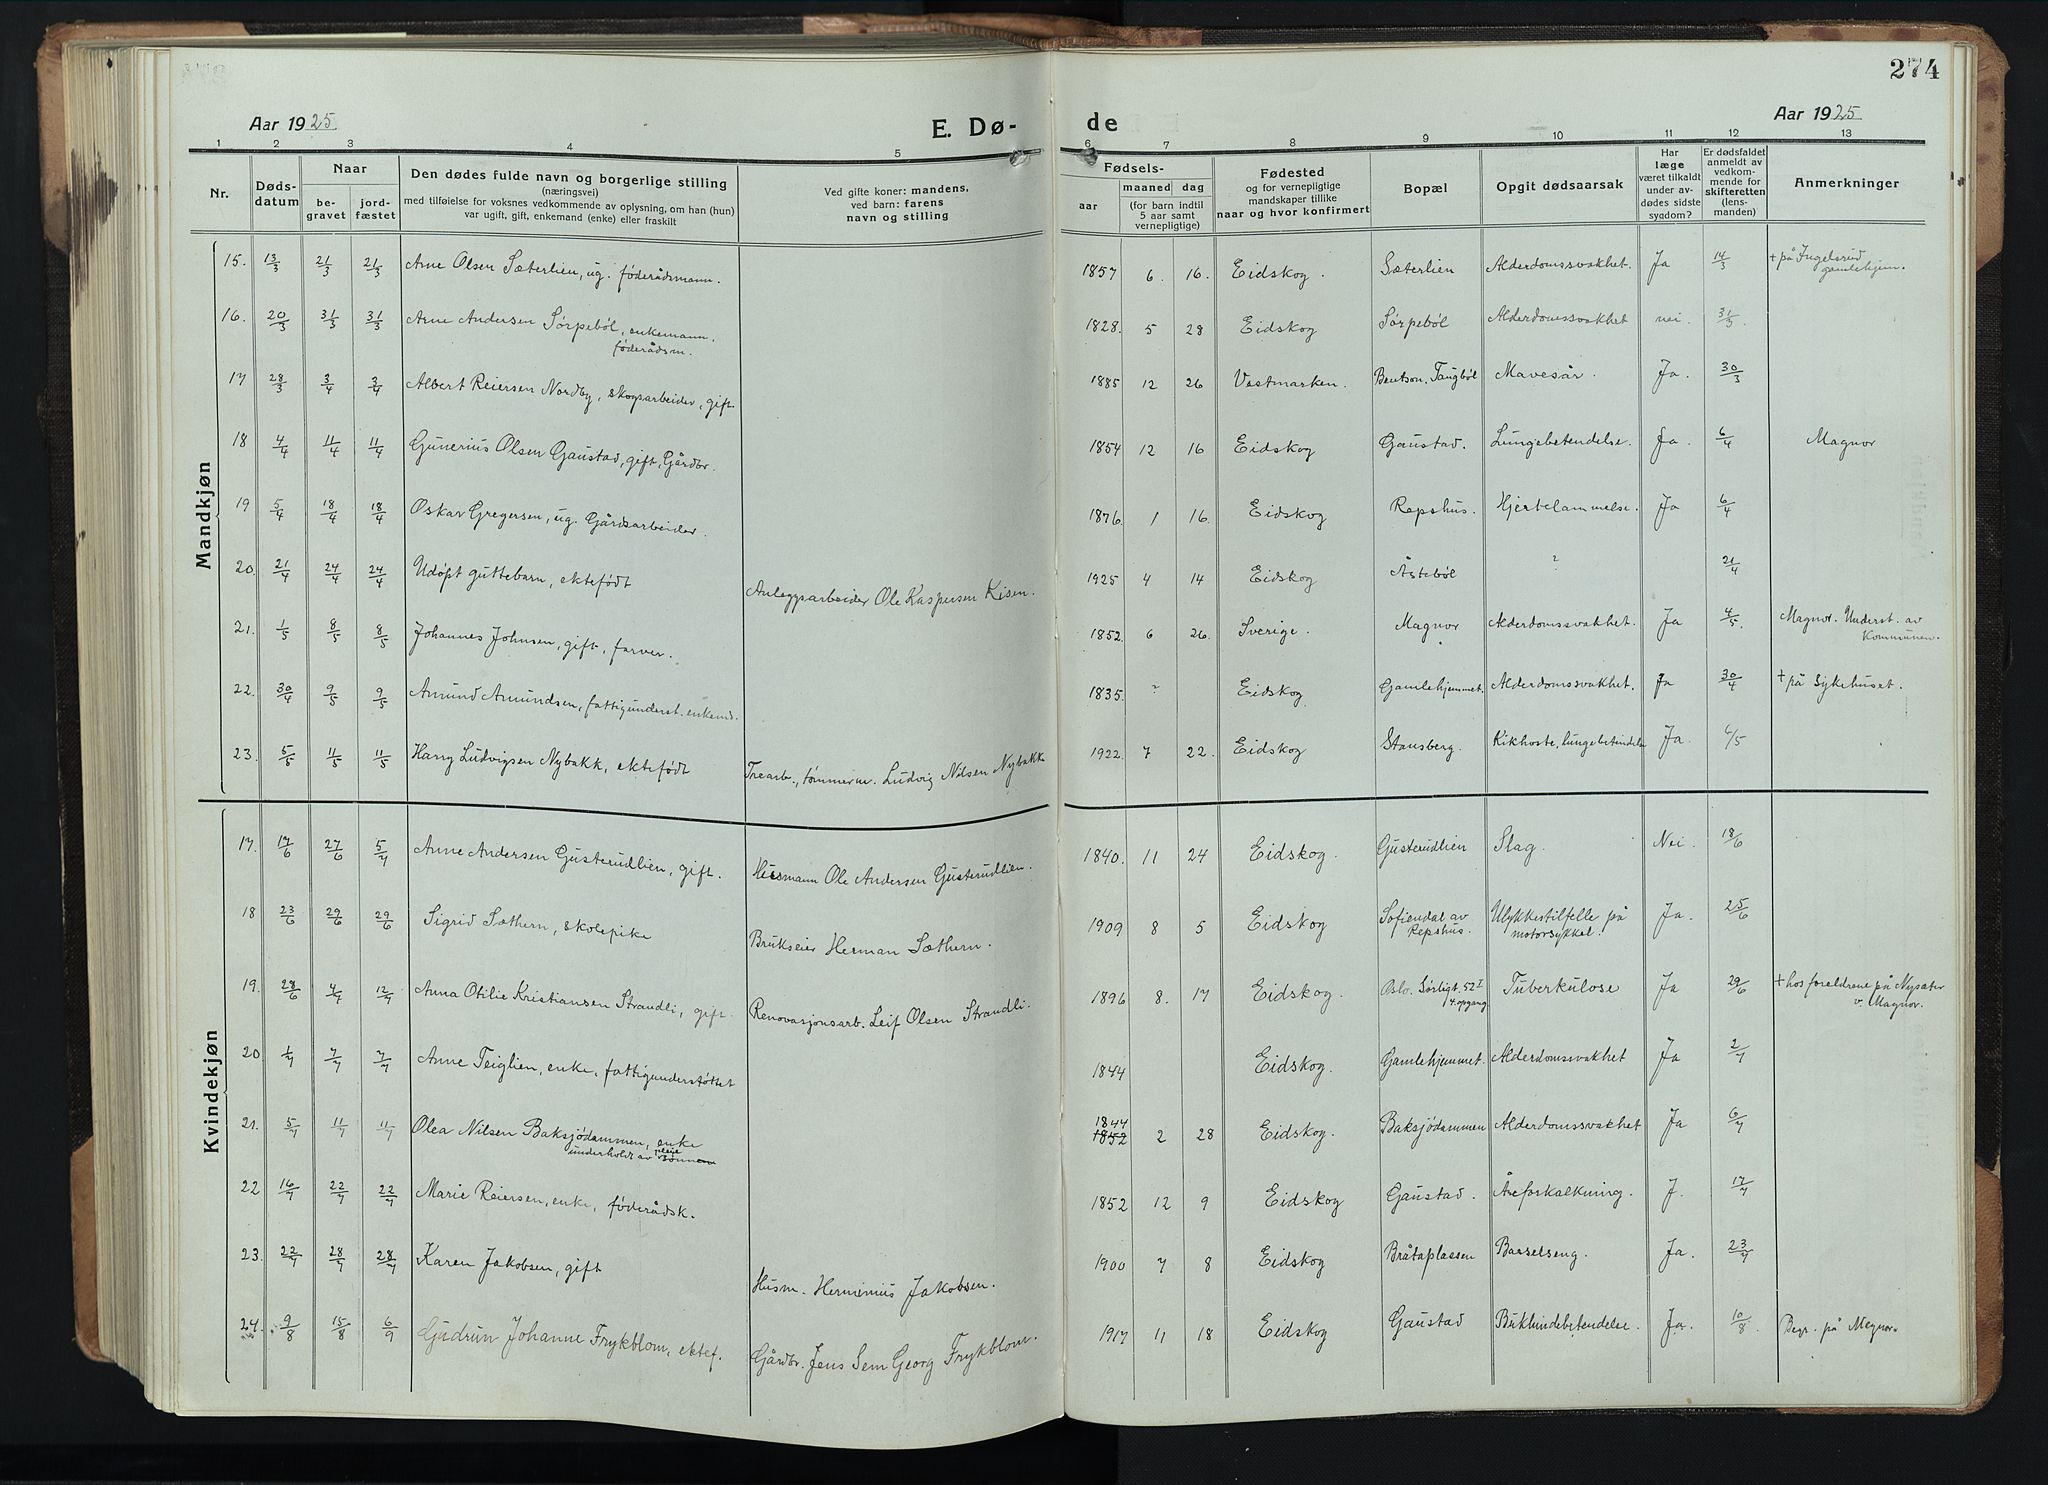 274
Aar 1925.
E. Dø-
de
Aar 1925
1 2 3 4 5 6 7 8 9 10 11 12 13
Nr.
Døds-
datum
Naar
be-
gravet
jord-
fæstet
Den dødes fulde navn og borgerlige stilling
(næringsvei)
med tilføielse for voksnes vedkommende av oplysning, om han (hun)
var ugift, gift, enkemand (enke) eller fraskilt
Ved gifte koner: mandens,
ved barn: farens
navn og stilling
Fødsels-
aar
maaned
dag
(for barn indtil
5 aar samt
vernepligtige)
Fødested
og for vernepligtige
mandskaper tillike
naar og hvor konfirmert
Bopæl
Opgit dødsaarsak
Har
læge
været tilkaldt
under av-
dødes sidste
sygdom?
Er dødsfaldet
anmeldt av
vedkom-
mende for
skifteretten
(lens-
manden)
Anmerkninger
Mandkjøn
15. 13/3 21/3 21/3 Arne Olsen Sæterlien, ug. føderådsmann. 1857 6. 16. Eidskog. Sæterlien Alderdomssvakhet. Ja 14/3 + på Ingelsrud
gamlehjem.
16. 20/3 31/3 31/3 Arne Andersen Sørpebøl, enkemann, 1828. 5 28 Eidskog Sørpebøl Alderdomssvakhet nei. 31/3
føderådsm.
17 28/3 3/4 3/4 Albert Reiersen Nordby, skogsarbeider, gift. 1885 12 26 Vestmarken. Bentson, Taugbøl Mavesår. Ja. 30/3
18 4/4 11/4 11/4 Gunerius Olsen Gaustad, gift, Gårdbr. 1854 12 16 Eidskog Gaustad. Lungebetendelse. Ja. 6/4 Magnor
19 5/4 18/4 18/4 Oskar Gregersen, ug. Gårdsarbeider. 1876. 1 16. Eidskog Repshus. Hjertelammelse. Ja 6/4
20. 21/4 24/4 24/4 Udøpt guttebarn, ektefødt Anleggsarbeider Ole Kaspersen Kisen. 1925 4 14 Eidskog Åstebøl ? 21/4
21. 1/5 8/5 8/5 Johannes Johnsen, gift, farver. 1852. 6 26. Sverige. Magnor Alderdomssvakhet. Ja 4/5. Magnor. Underst. av
Kommunen.
22. 30/4 9/5 9/5 Amund Amundsen, fattigunderst. enkem. 1835. ? Eidskog Gamlehjemmet. Alderdomssvakhet. Ja 30/4 + på Sykehuset.
23. 5/5 11/5 11/5 Harry Ludvigsen Nybakk, ektefødt Trearb., tømmerm. Ludvig Nilsen Nybakk 1922. 7 22. Eidskog Stansberg. Kikhoste, lungebetendelse Ja. 6/5
Kvindekjøn
17. 17/6 27/6 5/7 Anne Andersen Gusterudlien, gift. Husmann Ole Andersen Gusterudlien. 1840. 11 24 Eidskog. Gusterudlien Slag. Nei. 18/6
18 23/6 29/6 29/6 Sigrid Sæthern, skolepike Brukseier Herman Sæthern. 1909 8 5 Eidskog Sofiendal av
Repshus. Ulykkestilfelle på
motorsykkel. Ja. 25/6
19. 28/6 4/7 12/7 Anna Otilie Kristiansen Strandli, gift. Renovasjonsarb. Leif Olsen Strandli. 1896 8. 17 Eidskog. Oslo. Sørligt. 52 I
4. opgang Tuberkulose Ja 29/6 + hos foreldrene på Nysæter
v. Magnor.
20. 1/7 7/7 7/7 Anne Teiglien, enke, fattigunderstøttet 1844 Eidskog. Gamlehjemmet. Alderdomssvakhet Ja 2/7
21. 5/7 11/7 11/7 Olea Nilsen Baksjødammen, enke 1844
1852 2 28 Eidskog. Baksjødammen Alderdomssvakhet Ja 6/7
underholdt av pleie sønnen
22 16/7 22/7 22/7 Marie Reiersen, enke, føderådsk. 1852 12 9 Eidskog Gaustad. Åreforkalkning. J. 17/7
23. 22/7 28/7 28/7 Karen Jakobsen, gift Husm. Herminius Jakobsen. 1900 7 8 Eidskog Bråtaplassen Barselseng. Ja. 23/7
24. 9/8 15/8 6/9 Gudrun Johanne Frykblom, ektef. Gårdbr. Jens Sem Georg Frykblom. 1917 11 18 Eidskog Gaustad Bukhindebetendelse. Ja. 10/8 Begr. på Magnor.